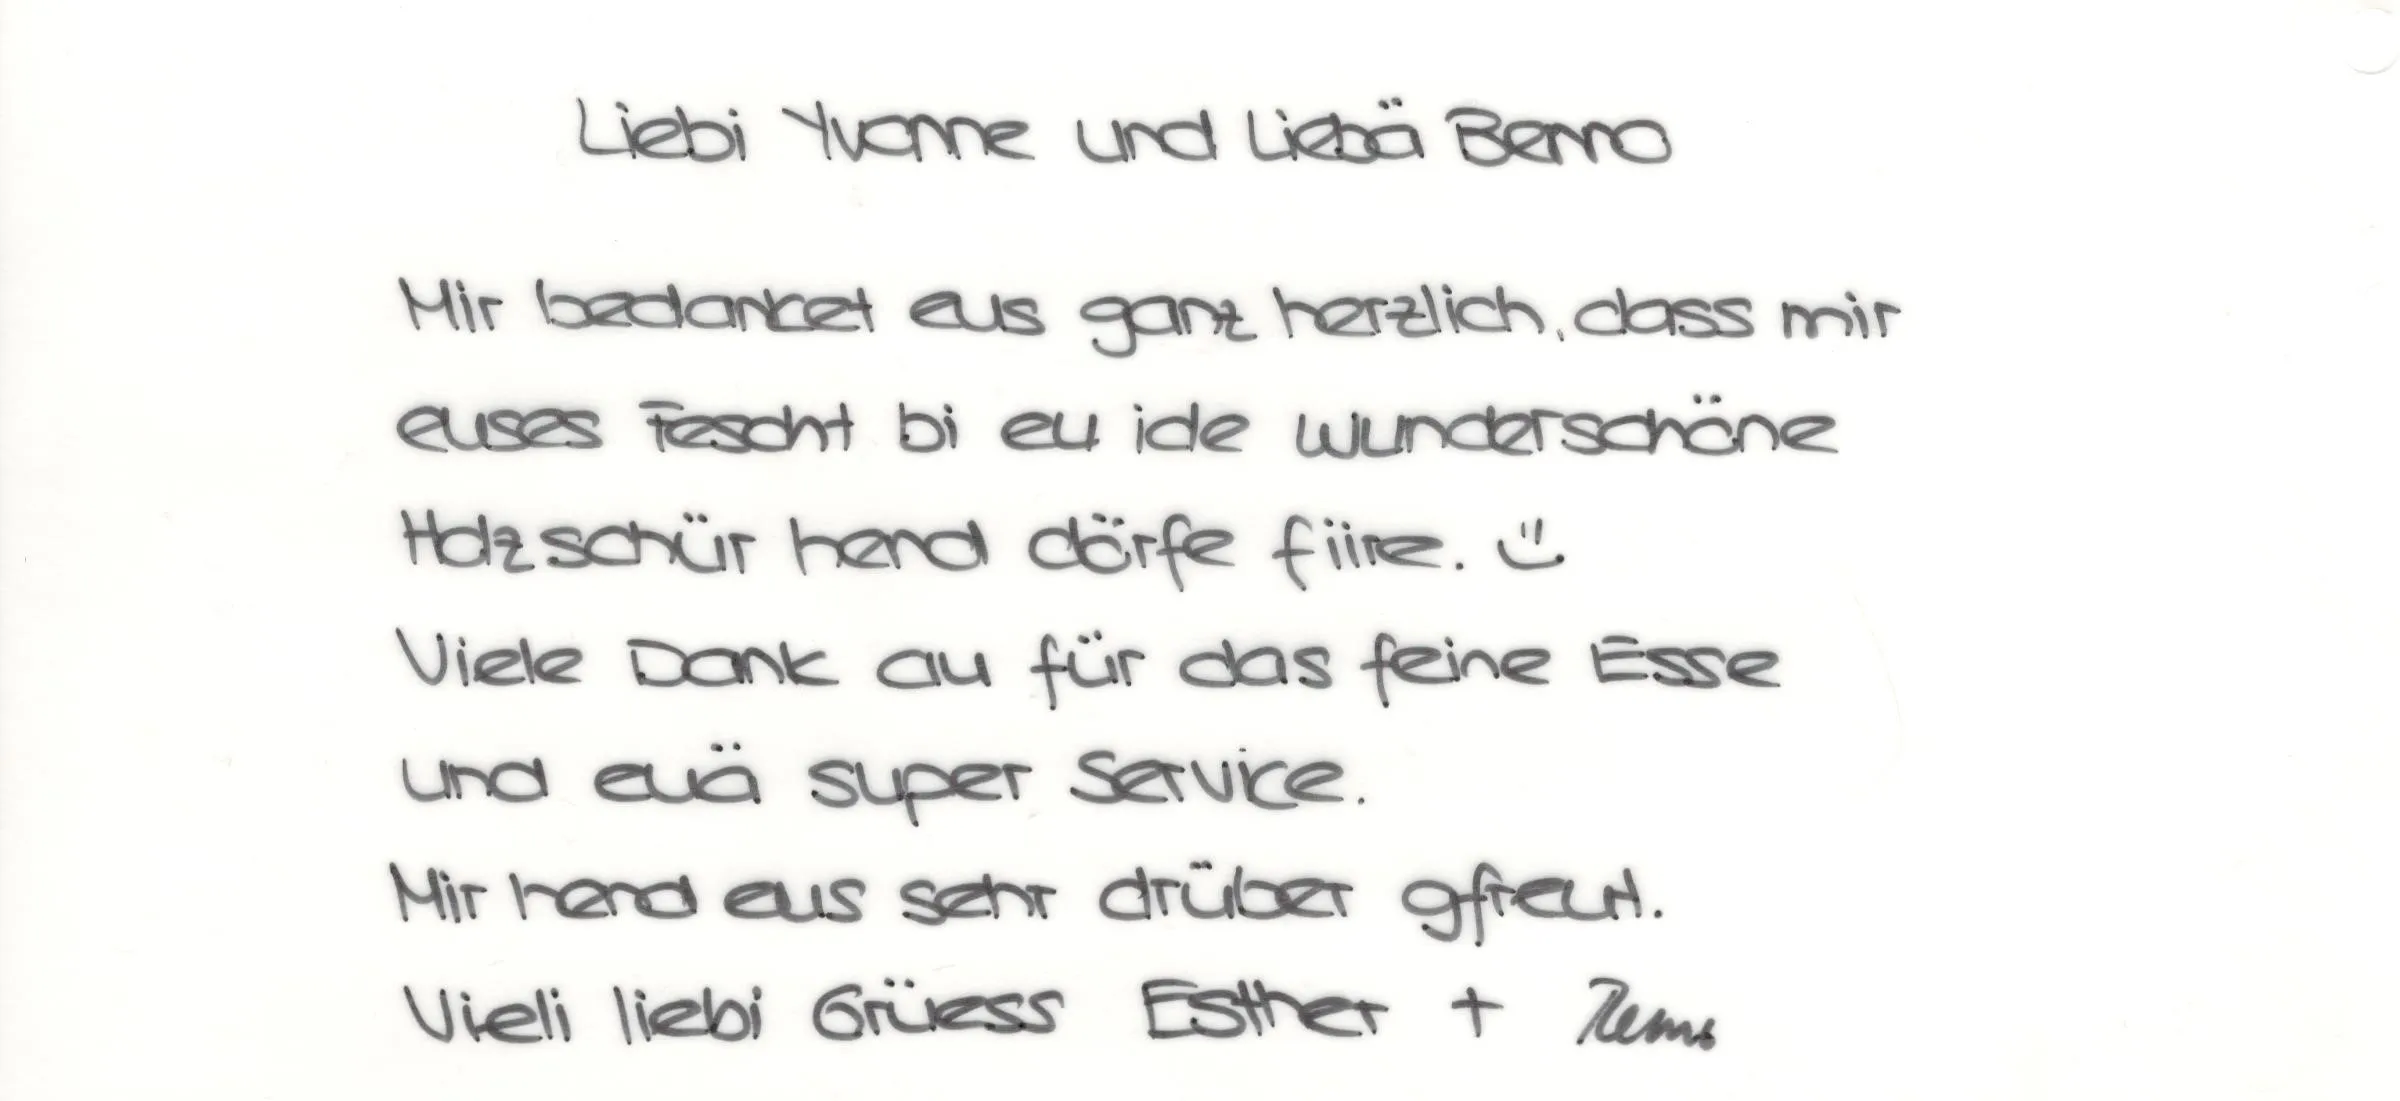 Liebi Yvonne und Liebä Benno
Mir bedanket eus ganz herzlich, dass mir
euses Fescht bi eu ide wunderschöne
Holzschür hend dörfe fiire. :)
Viele Dank au für das feine Esse
und euä super Service.
Mir hend eus sehr drüber gfreut.
Vieli liebi Grüess Esther + Remo